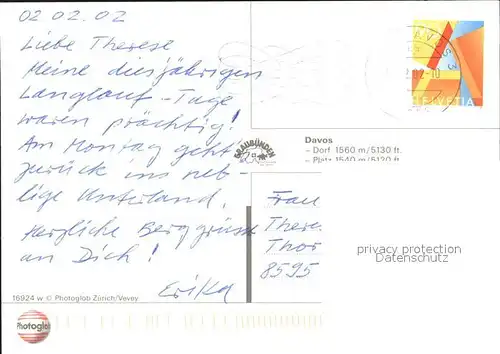 02.02.02
Liebe Therese
Meine diesjährigen
Langlauf-Tage
waren prächtig!
Am Montag geht's
zurück ins neb-
lige Unterland.
Herzliche Berggrüsse
an Dich!
Erika
16924 w © Photoglob Zürich/Vevey
Photoglob
GRAUBÜNDEN
HELVETIA
Davos
– Dorf 1560 m/5130 ft.
– Platz 1540 m/5120 ft.
Frau
There
Thor
8595
privacy protection
Datenschutz